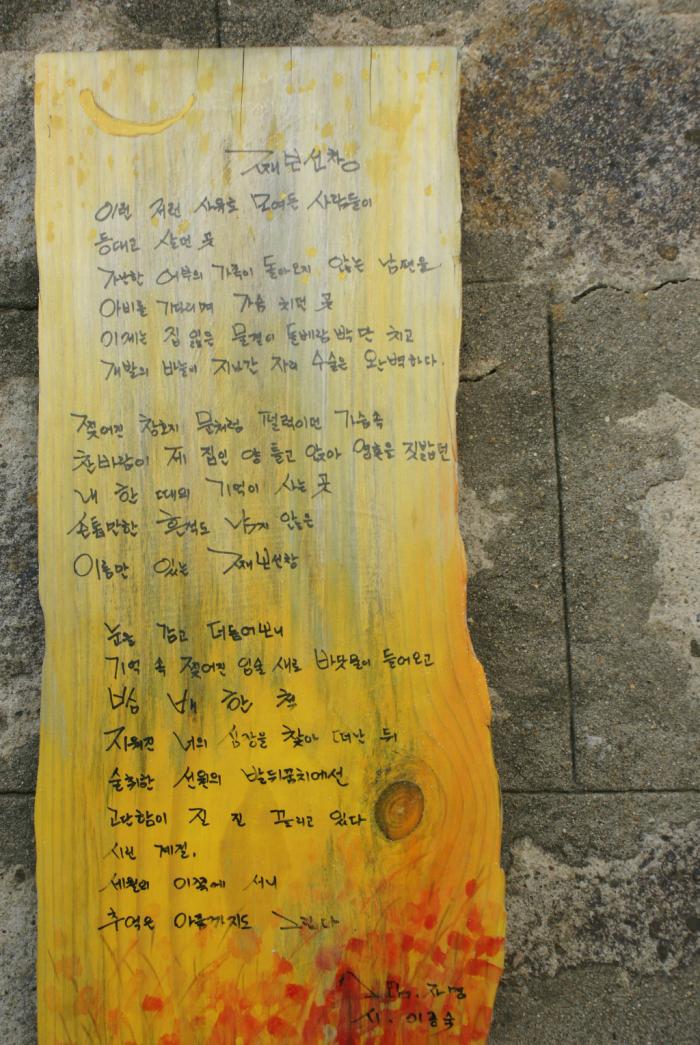 째보선창
이런 저런 사유로 모여든 사람들이
등대고 살던 곳
가난한 어부의 가족이 돌아오지 않는 남편을
아비를 기다리며 가슴 치던 곳
이제는 집 잃은 물결이 돌바람벽만 치고
개발의 바늘이 지나간 자리 수술은 완벽하다.
찢어진 창호지 문처럼 펄럭이던 가슴속
찬바람이 제 집인 양 틀고 앉아 영혼을 짓밟던
내 한 때의 기억이 사는 곳
손톱만한 흔적도 남지 않은
이름만 있는 째보선창
눈을 감고 더듬어보니
기억 속 찢어진 입술 새로 바닷물이 들어오고
밤 배 한 척
지워진 너의 심장을 찾아 떠난 뒤
술취한 선원의 발뒤꿈치에선
고단함이 진 진 끓리고 있다
시린 계절,
세월의 이쪽에 서니
추억은 아픔까지도 그린다
그림.
시. 이종숙